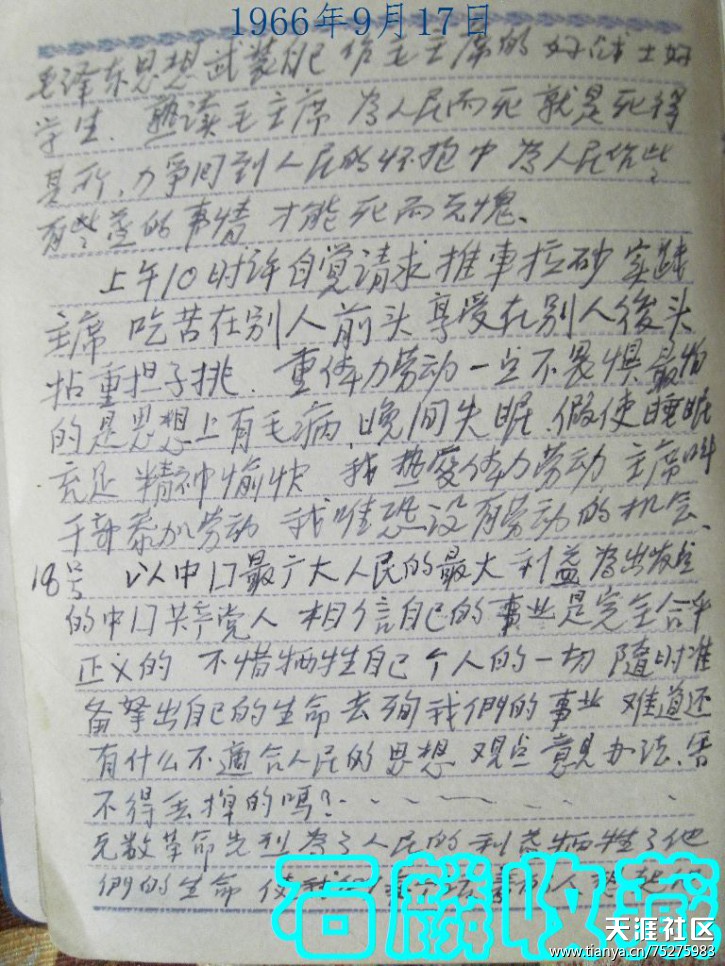 1966年9月17日
毛泽东思想武装自己 作毛主席的好战士好
学生、熟读毛主席 为人民而死 就是死得
其所、力争回到人民的怀抱中 为人民作些
有益的事情 才能死而无愧、
上午10时许自觉请求推車拉砂 实践
主席 吃苦在别人前头 享受在别人後头
拈重担子挑、重体力劳动一点不畏惧 最怕
的是思想上有毛病、晚间失眠、假使睡眠
充足 精神愉快 我热爱体力劳动 主席叫
干部参加劳动 我唯恐没有劳动的机会、
18号 以中囗最广大人民的最大利益为出发点
的中囗共产党人 相信自己的事业是完全合乎
正义的 不惜牺牲自己个人的一切 随时准
备拏出自己的生命去殉我們的事业 难道还
有什么不適合人民的思想 观点 意見 办法、舍
不得丢掉的吗?
无数革命先烈为了人民的利益牺牲了他
們的生命 使我们
石麟收藏
天涯社区
www.tianya.cn/75275983